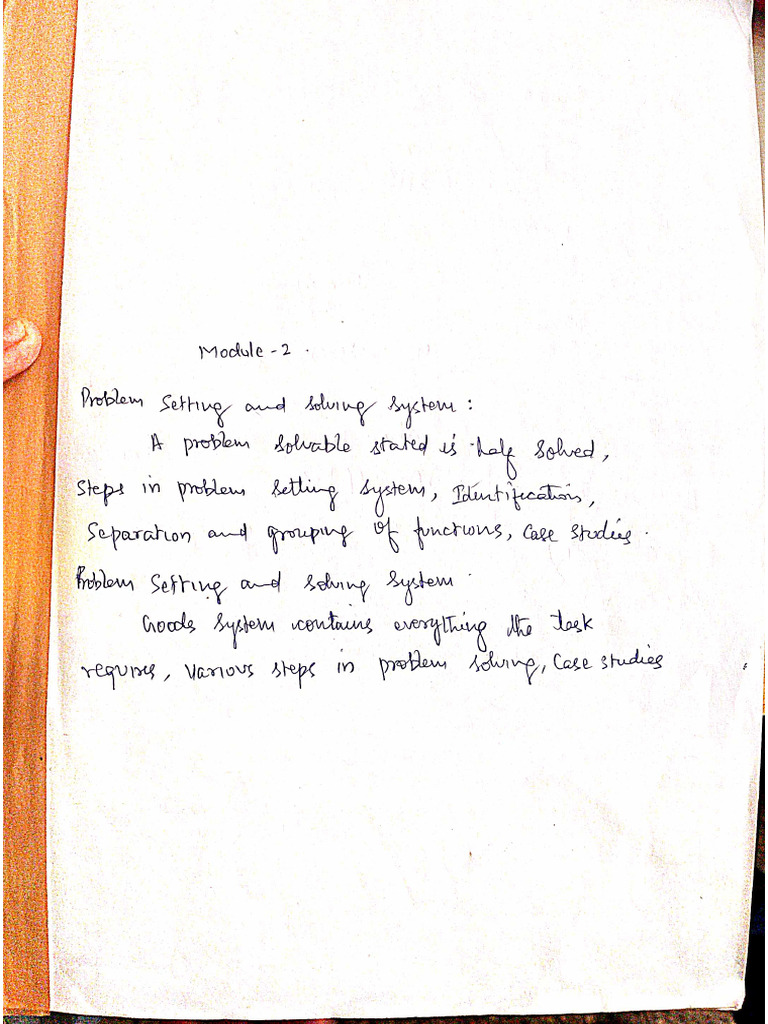 Module - 2 .
Problem Setting and solving system :
A problem solvable stated is half solved,
Steps in problem setting system, Identification,
Separation and grouping of functions, case studies.
Problem Setting and solving system.
Goods system contains everything the task
requires, various steps in problem solving, Case studies